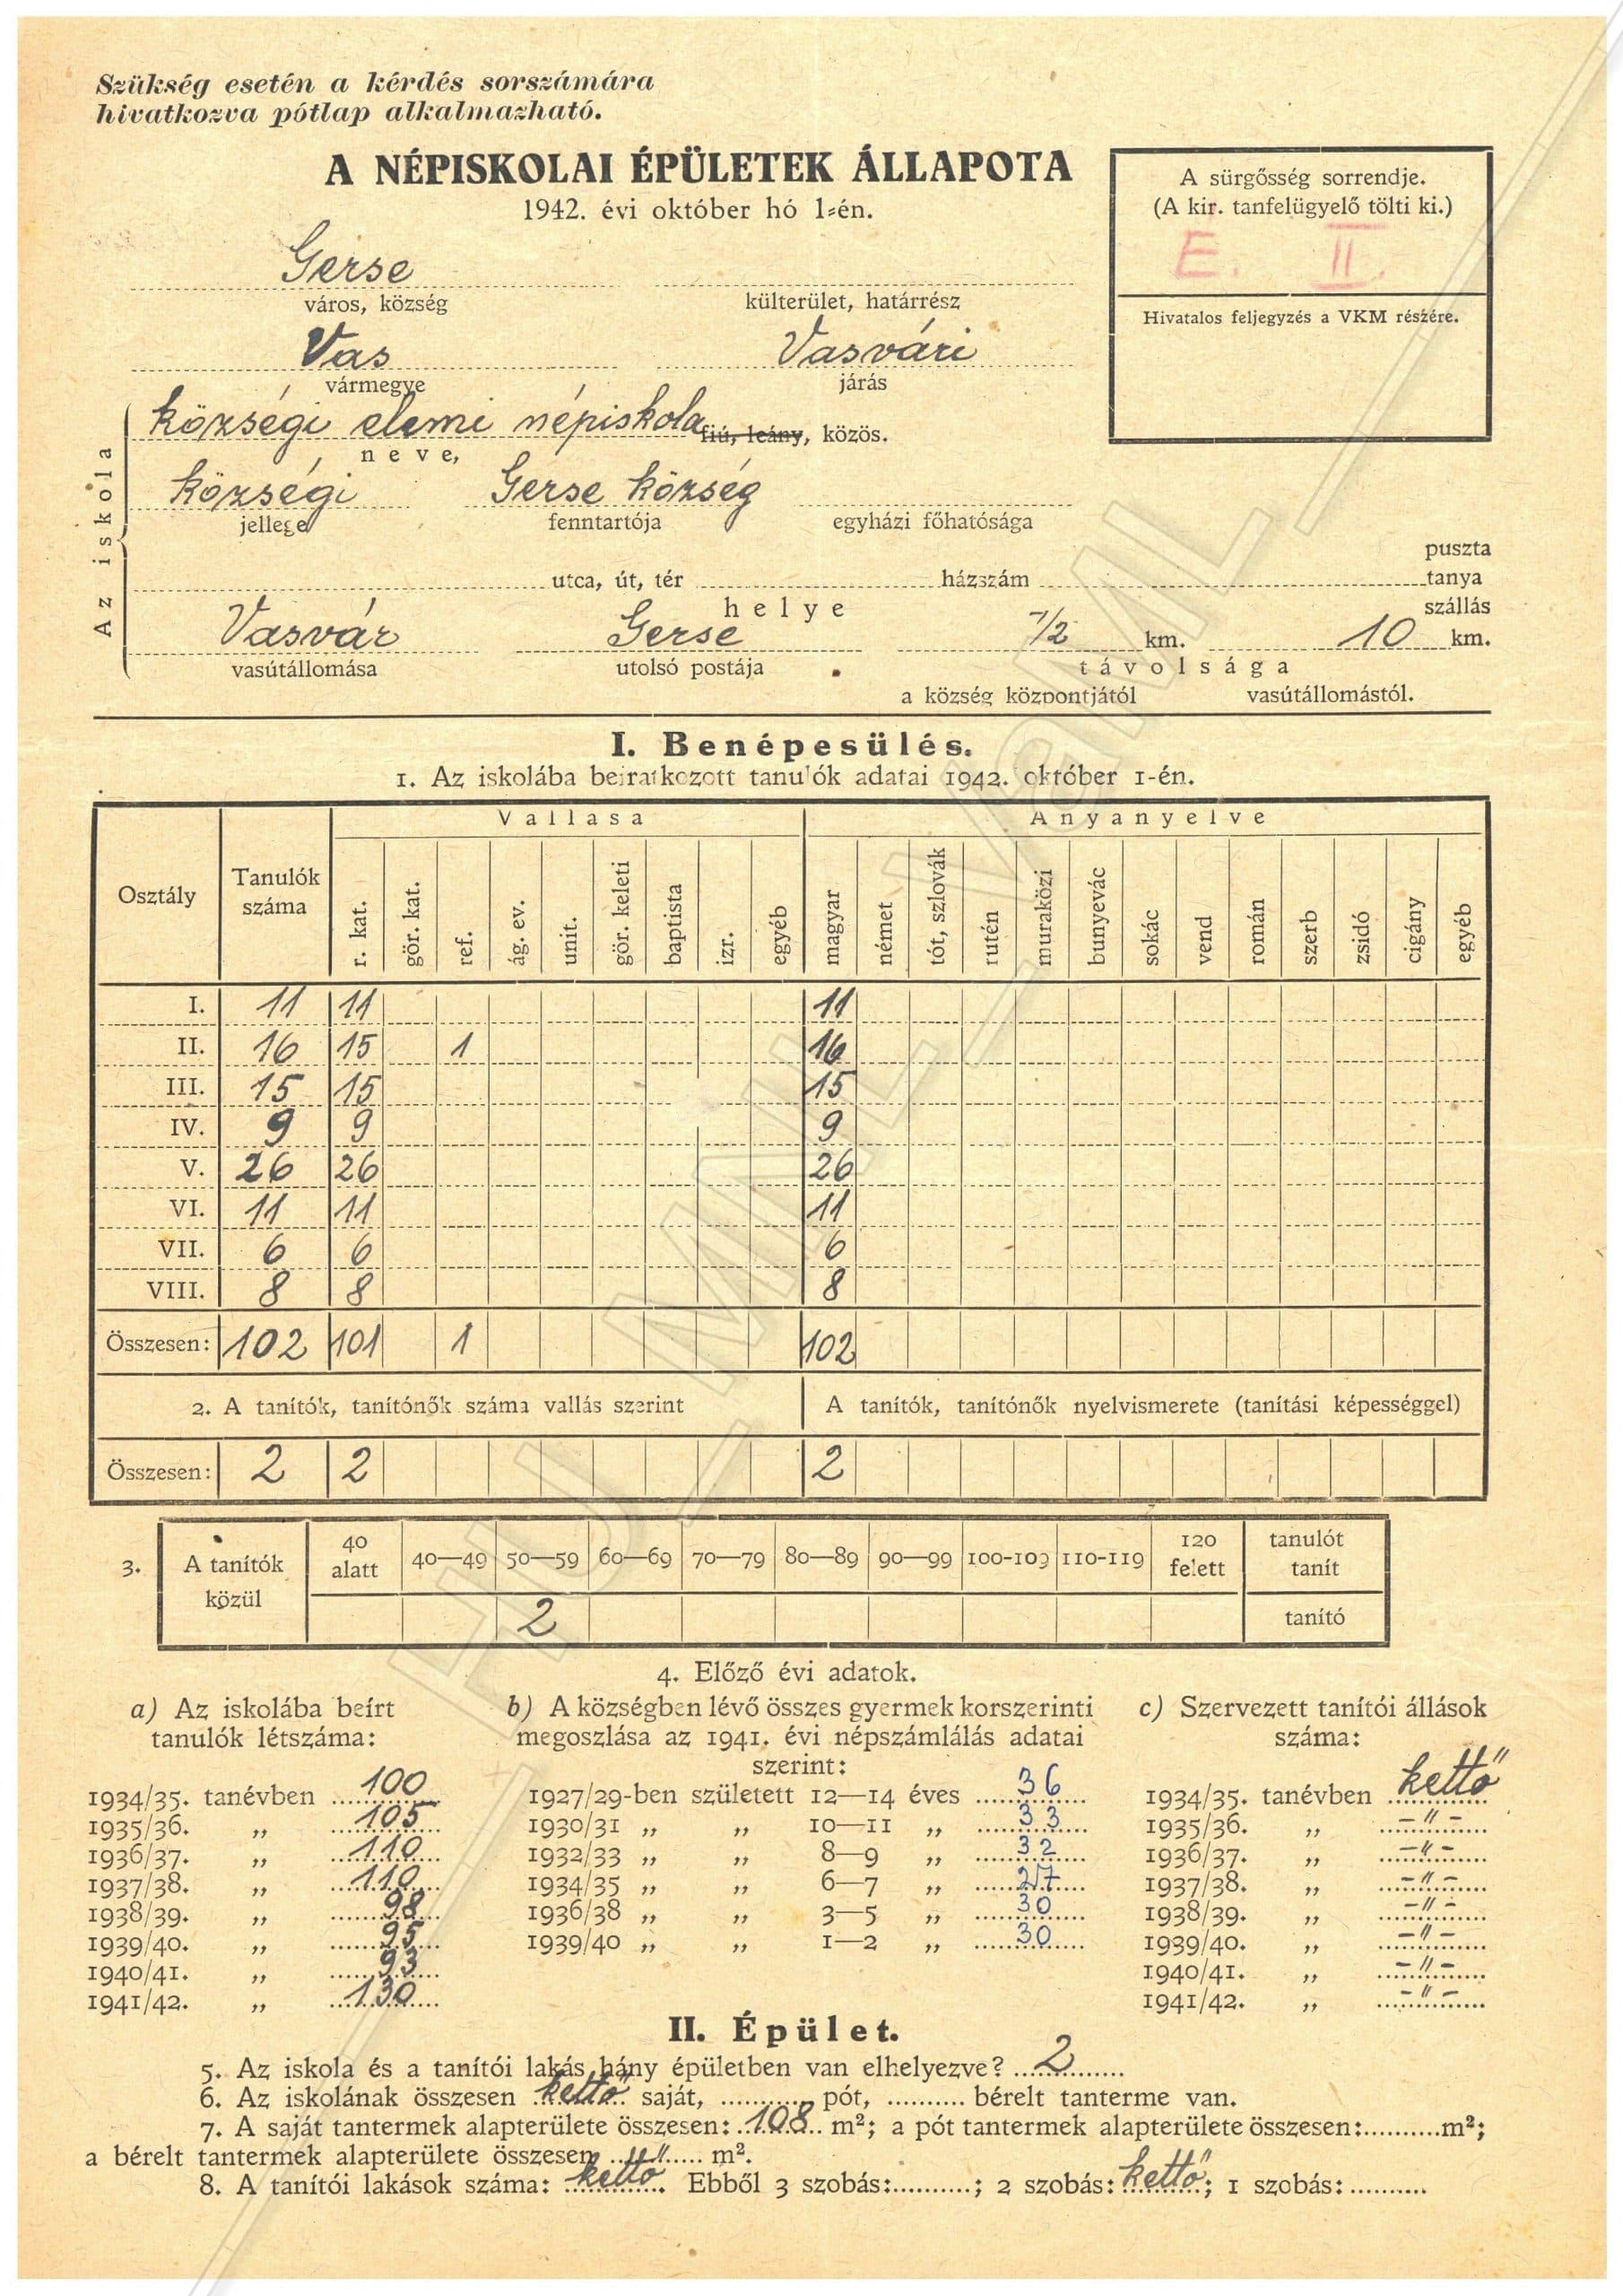 Szükség esetén a kérdés sorszámára
hivatkozva pótlap alkalmazható.
A NÉPISKOLAI ÉPÜLETEK ÁLLAPOTA
1942. évi október hó 1-én.
A sürgősség sorrendje.
(A kir. tanfelügyelő tölti ki.)
E. II.
Hivatalos feljegyzés a VKM részére.
Gerse
város, község külterület, határrész
Vas Vasvári
vármegye járás
Az iskola
községi elemi népiskola fiú, leány, közös.
neve,
községi Gerse község
jellege fenntartója egyházi főhatósága
puszta
utca, út, tér házszám tanya
helye szállás
Vasvár Gerse 1/2 km. 10 km.
vasútállomása utolsó postája távolsága
a község központjától vasútállomástól.
I. Benépesülés.
1. Az iskolába beiratkozott tanulók adatai 1942. október 1-én.
Osztály Tanulók száma Vallása Anyanyelve
r. kat. gör. kat. ref. ág. ev. unit. gör. keleti baptista izr. egyéb magyar német tót, szlovák rutén muraközi bunyevác sokác vend román szerb zsidó cigány egyéb
I. 11 11 11
II. 16 15 1 16
III. 15 15 15
IV. 9 9 9
V. 26 26 26
VI. 11 11 11
VII. 6 6 6
VIII. 8 8 8
Összesen: 102 101 1 102
2. A tanítók, tanítónők száma vallás szerint A tanítók, tanítónők nyelvismerete (tanítási képességgel)
Összesen: 2 2 2
3. A tanítók közül 40 alatt 40—49 50—59 60—69 70—79 80—89 90—99 100-109 110-119 120 felett tanulót tanít
2 tanító
4. Előző évi adatok.
a) Az iskolába beírt
tanulók létszáma:
1934/35. tanévben 100
1935/36. „ 105
1936/37. „ 110
1937/38. „ 110
1938/39. „ 98
1939/40. „ 95
1940/41. „ 93
1941/42. „ 130
b) A községben lévő összes gyermek korszerinti
megoszlása az 1941. évi népszámlálás adatai
szerint:
1927/29-ben született 12—14 éves 36
1930/31 „ „ 10—11 „ 33
1932/33 „ „ 8—9 „ 32
1934/35 „ „ 6—7 „ 27
1936/38 „ „ 3—5 „ 30
1939/40 „ „ 1—2 „ 30
c) Szervezett tanítói állások
száma:
1934/35. tanévben kettő
1935/36. „ –"–
1936/37. „ –"–
1937/38. „ –"–
1938/39. „ –"–
1939/40. „ –"–
1940/41. „ –"–
1941/42. „ –"–
II. Épület.
5. Az iskola és a tanítói lakás hány épületben van elhelyezve? 2
6. Az iskolának összesen kettő saját, .......... pót, .......... bérelt tanterme van.
7. A saját tantermek alapterülete összesen: 108 m²; a pót tantermek alapterülete összesen:..........m²;
a bérelt tantermek alapterülete összesen .......... m².
8. A tanítói lakások száma: kettő. Ebből 3 szobás:..........; 2 szobás: kettő; 1 szobás:..........
HU_MNL_VaML